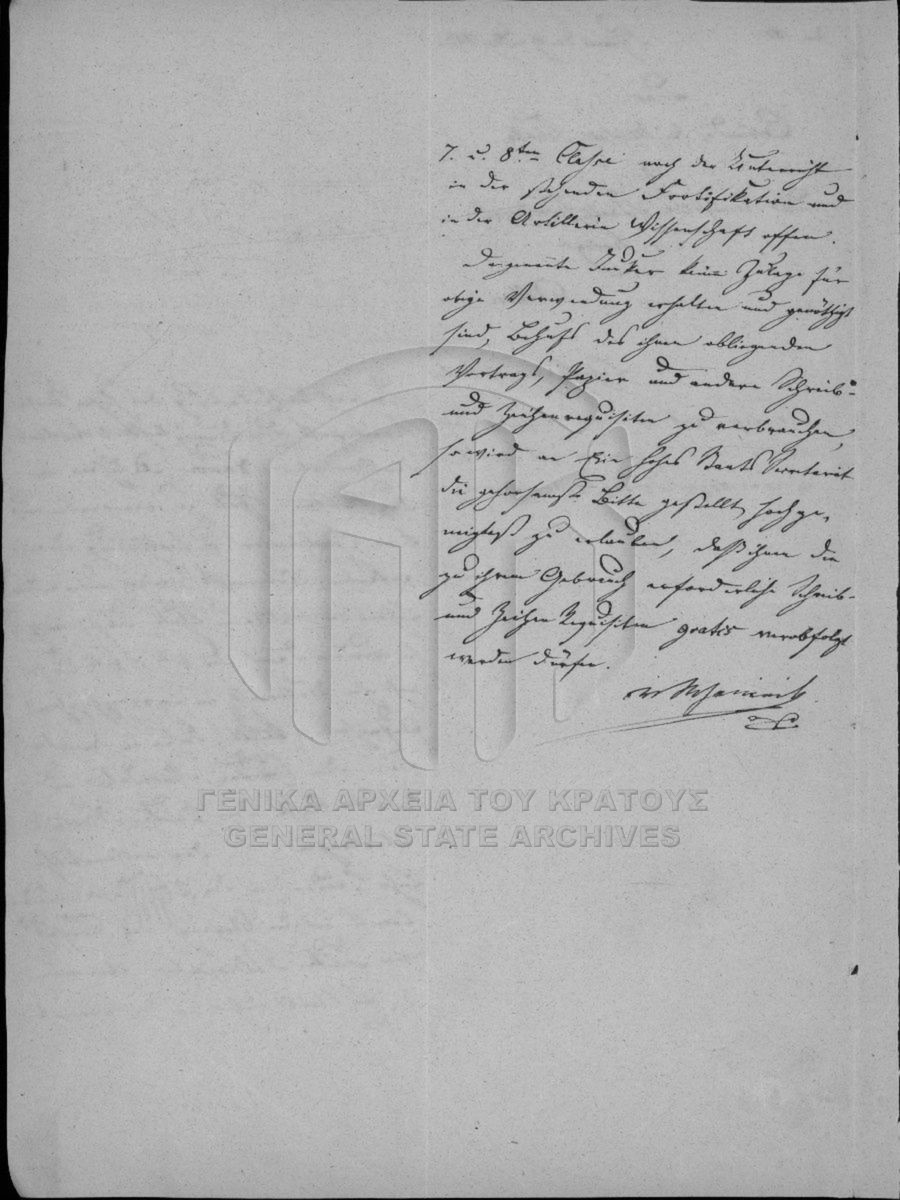 7. u. 8ten Classe noch der Unterricht
in der stehenden Fortifikation und
in der Artillerie Wissenschaft offen.
Da genannte Junker keine Zulage für
obige Verwendung erhalten und genöthigt
sind, Behufs des ihnen obliegenden
Vortrags, Papier und andere Schreib-
und Zeichenrequisiten zu verbrauchen,
so wird an Ein hohes Staats Secretariat
die gehorsamste Bitte gestellt hochge-
neigtest zu erlauben, daß ihnen die
zu ihrem Gebrauch erforderliche Schreib-
und Zeichen Requisiten gratis verabfolgt
werden dürfen.
ΓΕΝΙΚΑ ΑΡΧΕΙΑ ΤΟΥ ΚΡΑΤΟΥΣ
GENERAL STATE ARCHIVES